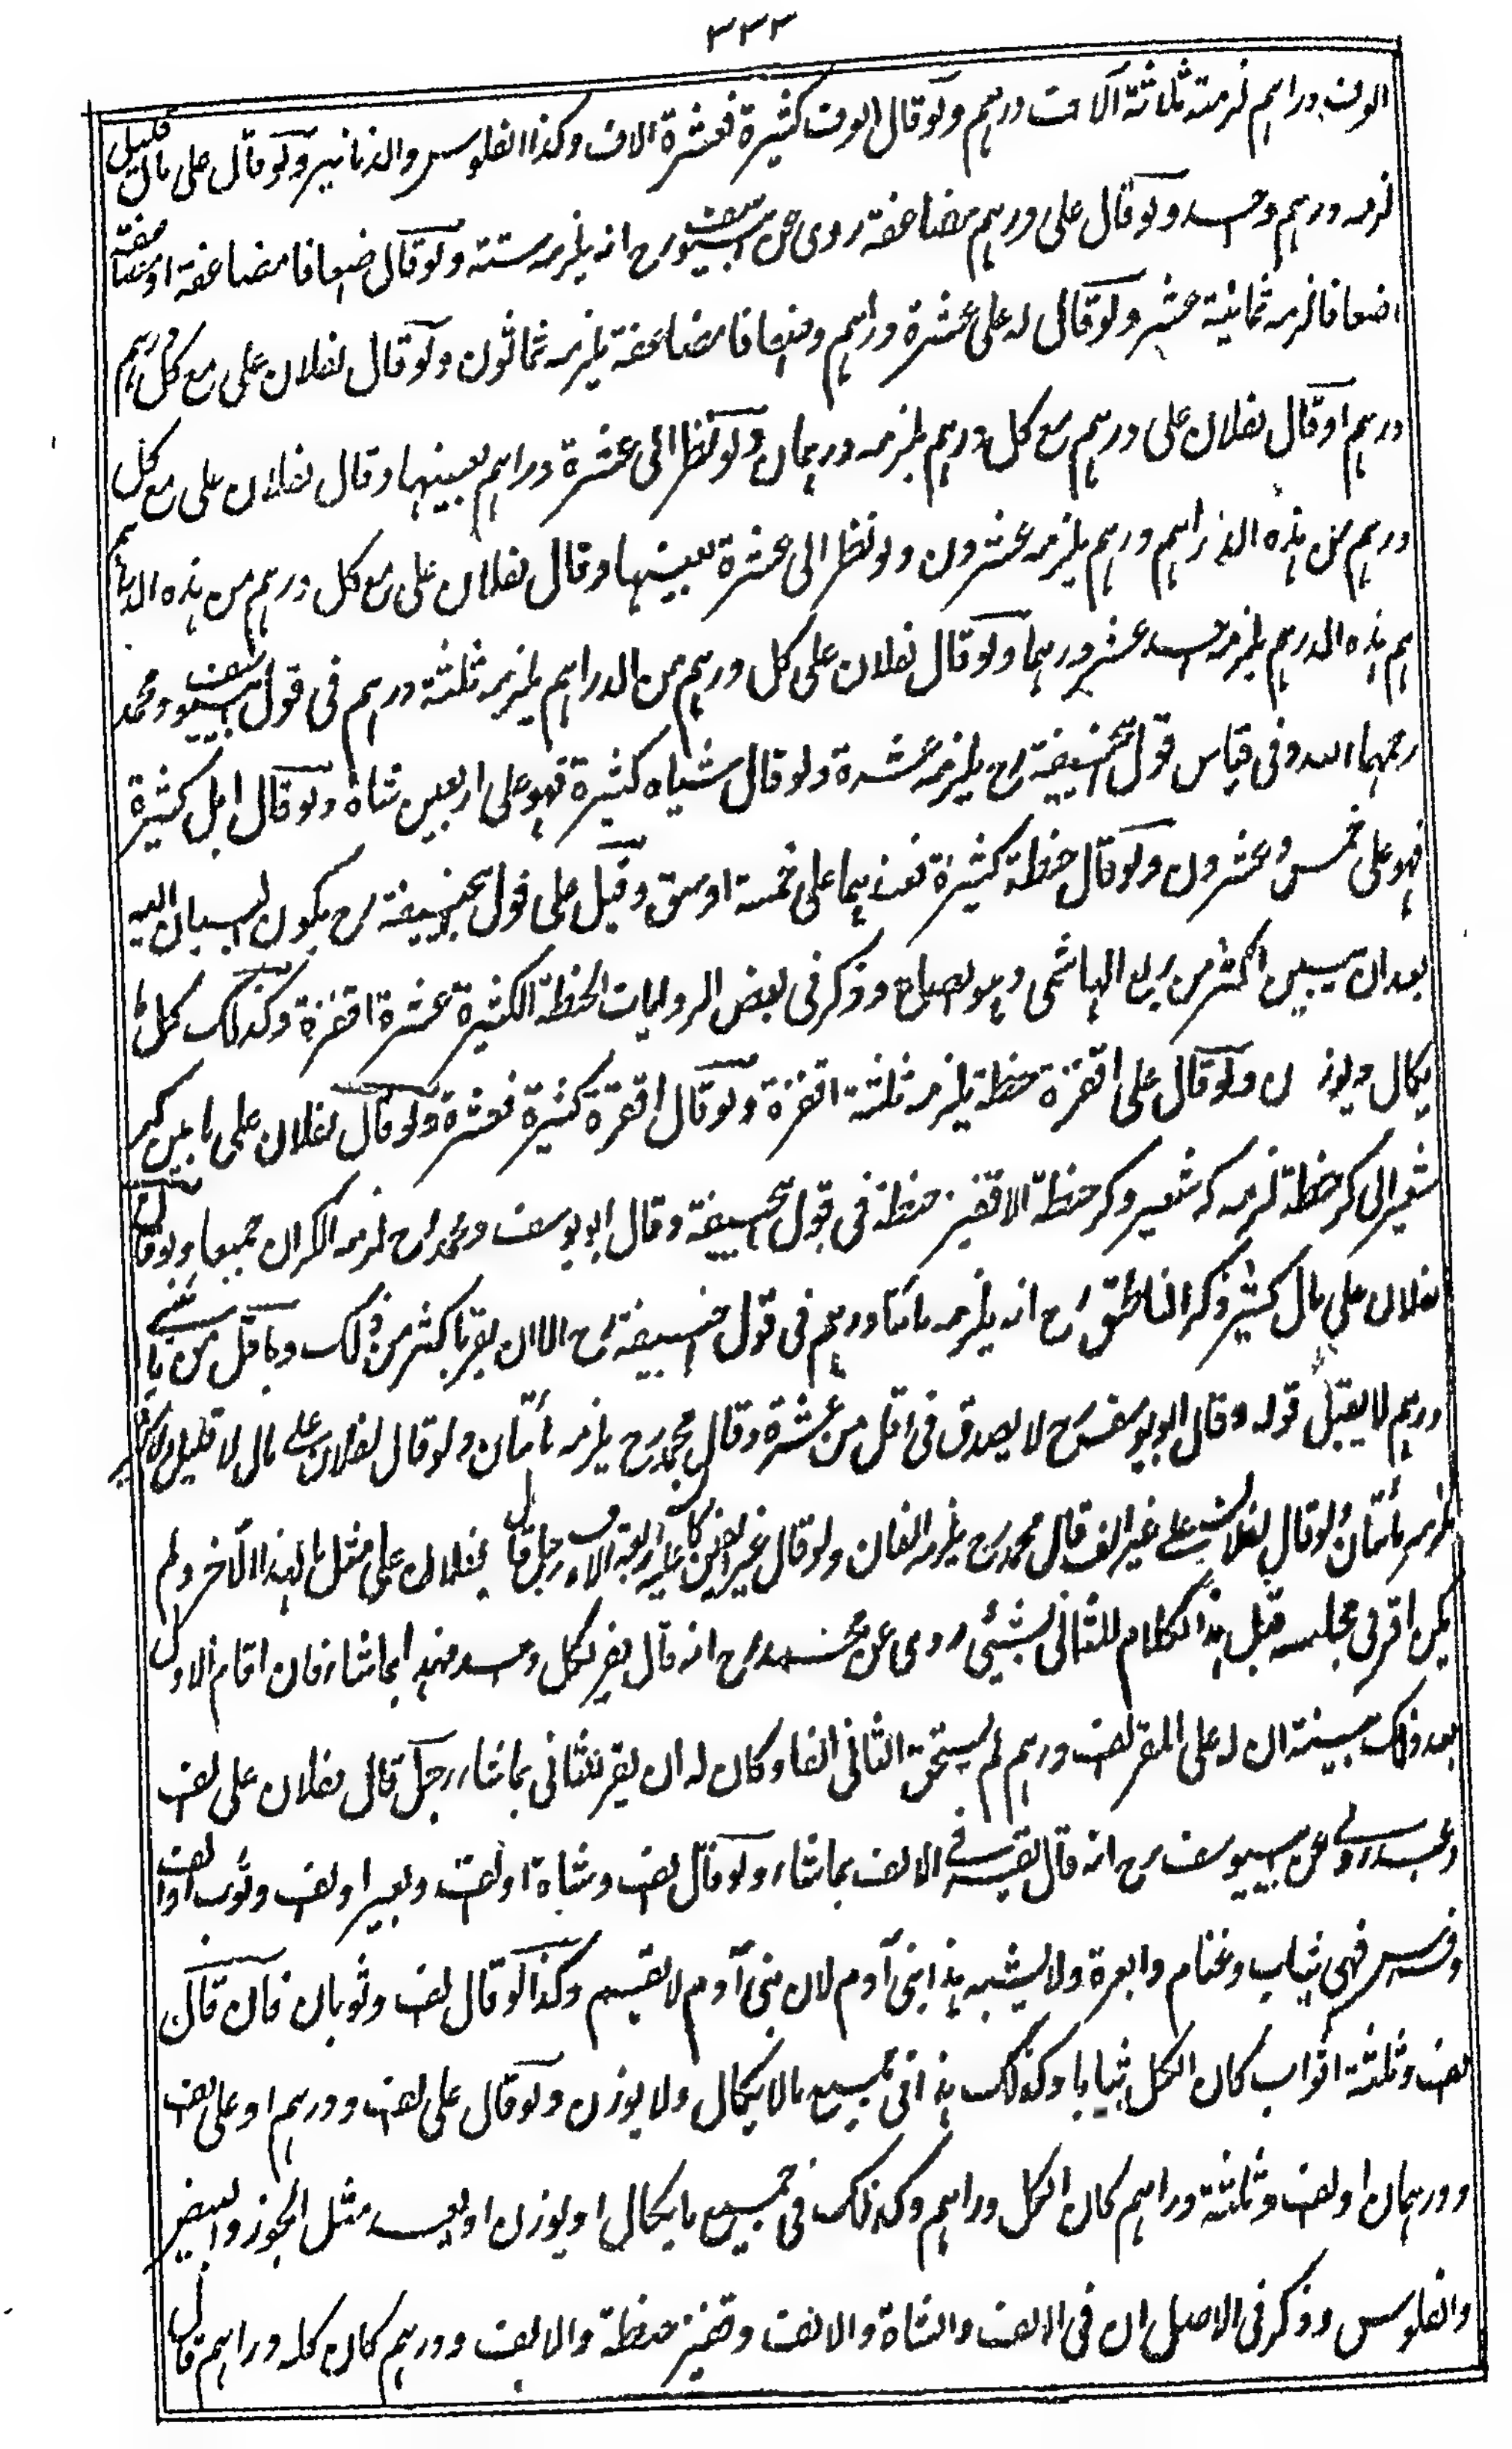 ٣٣٣
الوف دراهم لزمته ثلاثة آلاف درهم ولو قال الوف كثيرة فعشرة الاف وكذا الفلوس والدنانير ولو قال على مال قليل
لزمه درهم واحد ولو قال على درهم مضاعفة روى عن ابييوسف رح انه يلزمه ستة ولو قال اضعافا مضاعفة او مضاعفة
اضعافا لزمه ثمانية عشر ولو قال له على عشرة دراهم واضعافا مضاعفة يلزمه ثمانون ولو قال لفلان على مع كل درهم
درهم او قال لفلان على درهم مع كل درهم يلزمه درهمان ولو نظر الى عشرة دراهم بعينها وقال لفلان على مع كل
درهم من هذه الدراهم درهم يلزمه عشرون ولو نظر الى عشرة بعينها وقال لفلان على مع كل درهم من هذه الدراهم
هم هذه الدرهم يلزمه احد عشر درهما ولو قال لفلان على كل درهم من الدراهم يلزمه ثلثة درهم فى قول ابييوسف ومحمد
رحمهما الله وفى قياس قول ابيحنيفة رح يلزمه عشرة ولو قال شياه كثيرة فهو على اربعين شاة ولو قال ابل كثيرة
فهو على خمس وعشرون ولو قال حنطة كثيرة فعندهما على خمسة اوسق وقيل على قول ابيحنيفة رح يكون البيان اليه
بعد ان يبين اكثر من ربع الهاشمى وهو الصاع وذكر فى بعض الروايات الحنطة الكثيرة عشرة اقفزة وكذلك كل ما
يكال ويوزن ولو قال على اقفزة حنطة يلزمه ثلثة اقفزة ولو قال اقفزة كثيرة فعشرة ولو قال لفلان على ما بين كر
شعير الى كر حنطة لزمه كر شعير وكر حنطة الا قفيز حنطة فى قول ابيحنيفة وقال ابو يوسف ومحمد رح لزمه الكران جميعا ولو قال
لفلان على مال كثير ذكر الناطقى رح انه يلزمه مائتا درهم فى قول ابيحنيفة رح الا ان يقر باكثر من ذلك وباقل من مائتى
درهم لا يقبل قوله وقال ابو يوسف رح لا يصدق فى اقل من عشرة وقال محمد رح يلزمه مائتان ولو قال لفلان على مال لا قليل ولا كثير
يلزمه مائتان ولو قال لفلان على غير الف قال محمد رح يلزمه الفان ولو قال غير الفين كان عليه اربعة الاف رجل قال لفلان على مثل ما لهذا الآخر ولم
يكن اقر فى مجلسه قبل هذا الكلام للثانى بشيئ روى عن محمد رح انه قال يقر لكل واحد منهما بما شاء فان اقام الاول
بعد ذلك بينة ان له على المقر الف درهم لم يستحق الثانى الفا وكان له ان يقر للثانى بما شاء رجل قال لفلان على الف
وعبد روى عن ابييوسف رح انه قال يقر فى الالف بما شاء ولو قال الف وشاة او الف وبعير او الف وثوب او الف
وفرس فهى ثياب وغنام وابعرة ولا يشبه هذا بنى آدم لان بنى آدم لا يقسم وكذا لو قال الف وثوبان فان قال
الف وثلثة اثواب كان الكل ثيابا وكذلك هذا فى جميع ما لا يكال ولا يوزن ولو قال على الف ودرهم او على الف
ودرهمان او الف وثلثة دراهم كان الكل دراهم وكذلك فى جميع ما يكال او يوزن او يعد مثل الجوز والبيض
والفلوس وذكر فى الاصل ان فى الالف والشاة والالف وقفيز حنطة والالف ودرهم كان كله دراهم قال